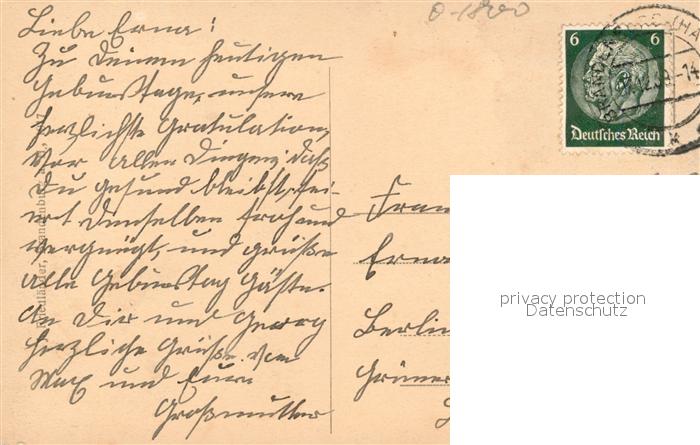 Liebe Erna!
Zu Deinem heutigen
Geburtstage, unsere
herzlichste Gratulation,
Vor allen Dingen, daß
Du gesund bleibst, fei-
ert denselben froh und
vergnügt, und grüße
alle Geburtstag Gäste.
An Dir und Georg
herzliche Grüße von
Max und Eure
Großmutter
0-1800
6 6
Deutsches Reich
BRANDEN (HA
39.-14
Frau
Erna
Berlin
Grüner
privacy protection
Datenschutz